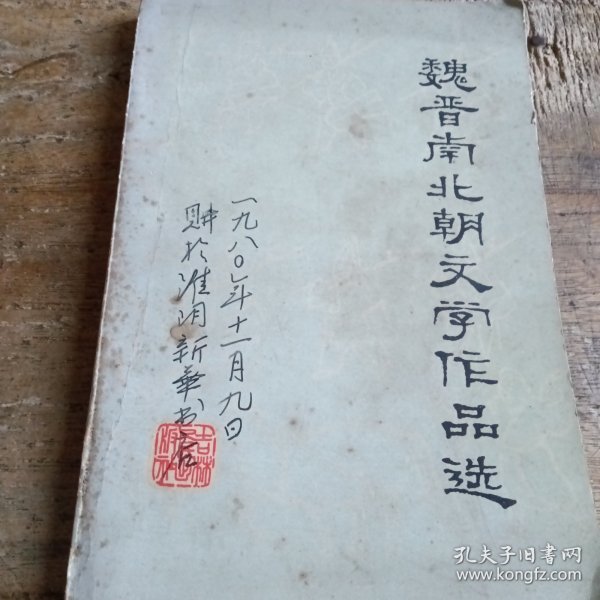 魏晋南北朝文学作品选
一九八〇年十一月九日
购於淮阴新华书店
孔夫子旧书网
www.kongfz.com